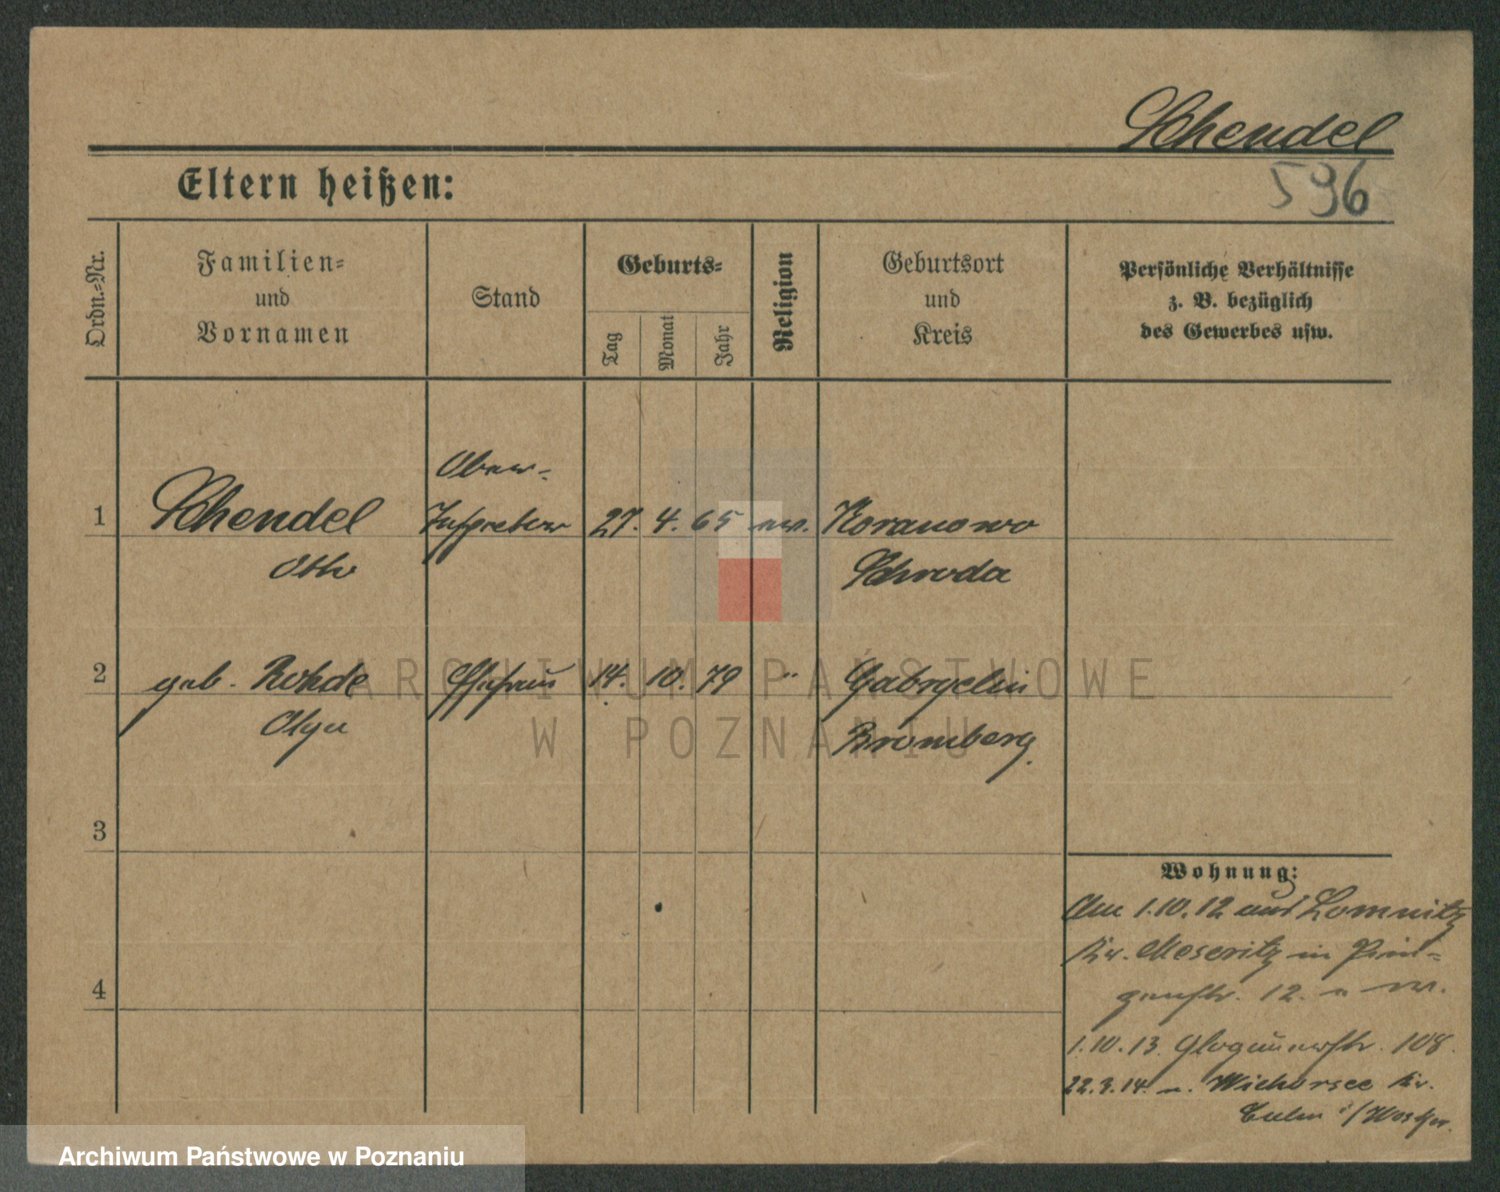 Schendel
596
Eltern heißen:
Ordn.-Nr.
Familien-
und
Vornamen
Stand
Geburts-
Tag
Monat
Jahr
Religion
Geburtsort
und
Kreis
Persönliche Verhältnisse
z. B. bezüglich
des Gewerbes usw.
Ober-
1 Schendel Inspektor 27. 4. 65 ev. Koranowo
Otto Schroda
2 geb. Rohde Ehefrau 14. 10. 79 " Gabryelin
Olga Bromberg.
3
4
Wohnung:
Am 1.10.12 aus Lomnitz
Kr. Meseritz in
12.
1.10.13. Glogauerstr. 108.
22.3.14. n. Wichorsee Kr.
Culm i/Westpr.
ARCHIWUM PAŃSTWOWE
W POZNANIU
Archiwum Państwowe w Poznaniu